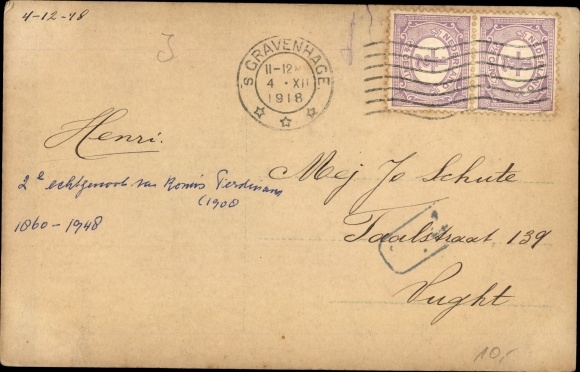 4-12-18
'S GRAVENHAGE
11-12
4 · XII
1918
NEDERLAND
NEDERLAND
Henri.
2e echtgenoote van Konins Ferdinand
(1908
1860-1948
Mej Jo Schute
Taalstraat 139
Vught
10,-